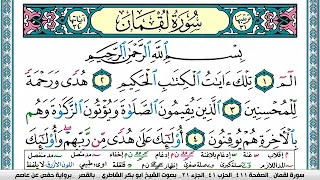 سُورَةُ لُقْمَانَ
بِسْمِ ٱللَّهِ ٱلرَّحْمَٰنِ ٱلرَّحِيمِ
الٓمٓ ١ تِلْكَ ءَايَٰتُ ٱلْكِتَٰبِ ٱلْحَكِيمِ ٢ هُدًى وَرَحْمَةً
لِّلْمُحْسِنِينَ ٣ ٱلَّذِينَ يُقِيمُونَ ٱلصَّلَوٰةَ وَيُؤْتُونَ ٱلزَّكَوٰةَ وَهُم
بِٱلْءَاخِرَةِ هُمْ يُوقِنُونَ ٤ أُو۟لَٰٓئِكَ عَلَىٰ هُدًى مِّن رَّبِّهِمْ وَأُو۟لَٰٓئِكَ
سورة لقمان الصفحة ٤١١ الحزب ٤١ الجزء ٢١ بصوت الشيخ أبو بكر الشاطري بالقصر برواية حفص عن عاصم